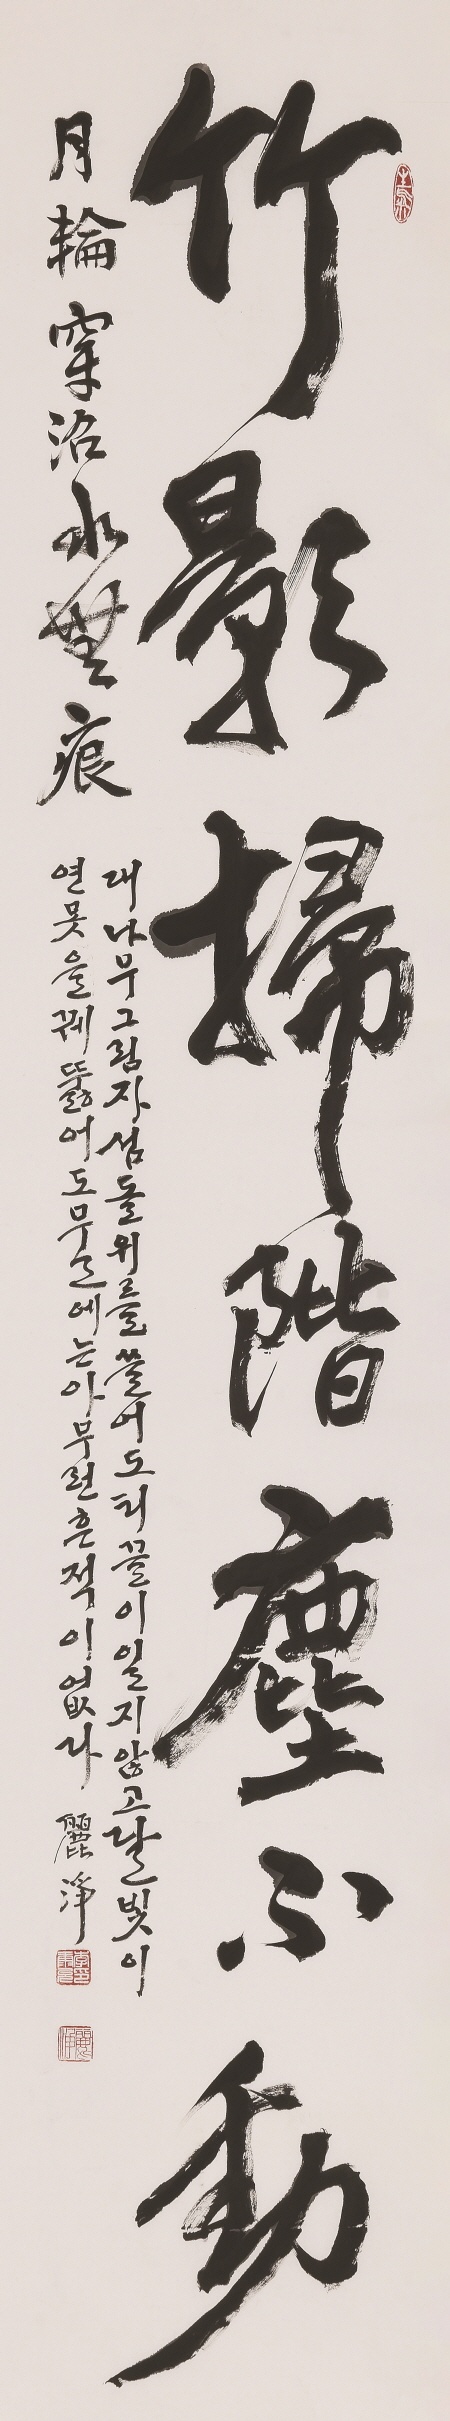 竹影掃階塵不動
月輪穿沼水無痕
대나무그림자섬돌위를쓸어도티끌이일지않고달빛이
연못을꿰뚫어도무르에는아무런흔적이없다 麗淨